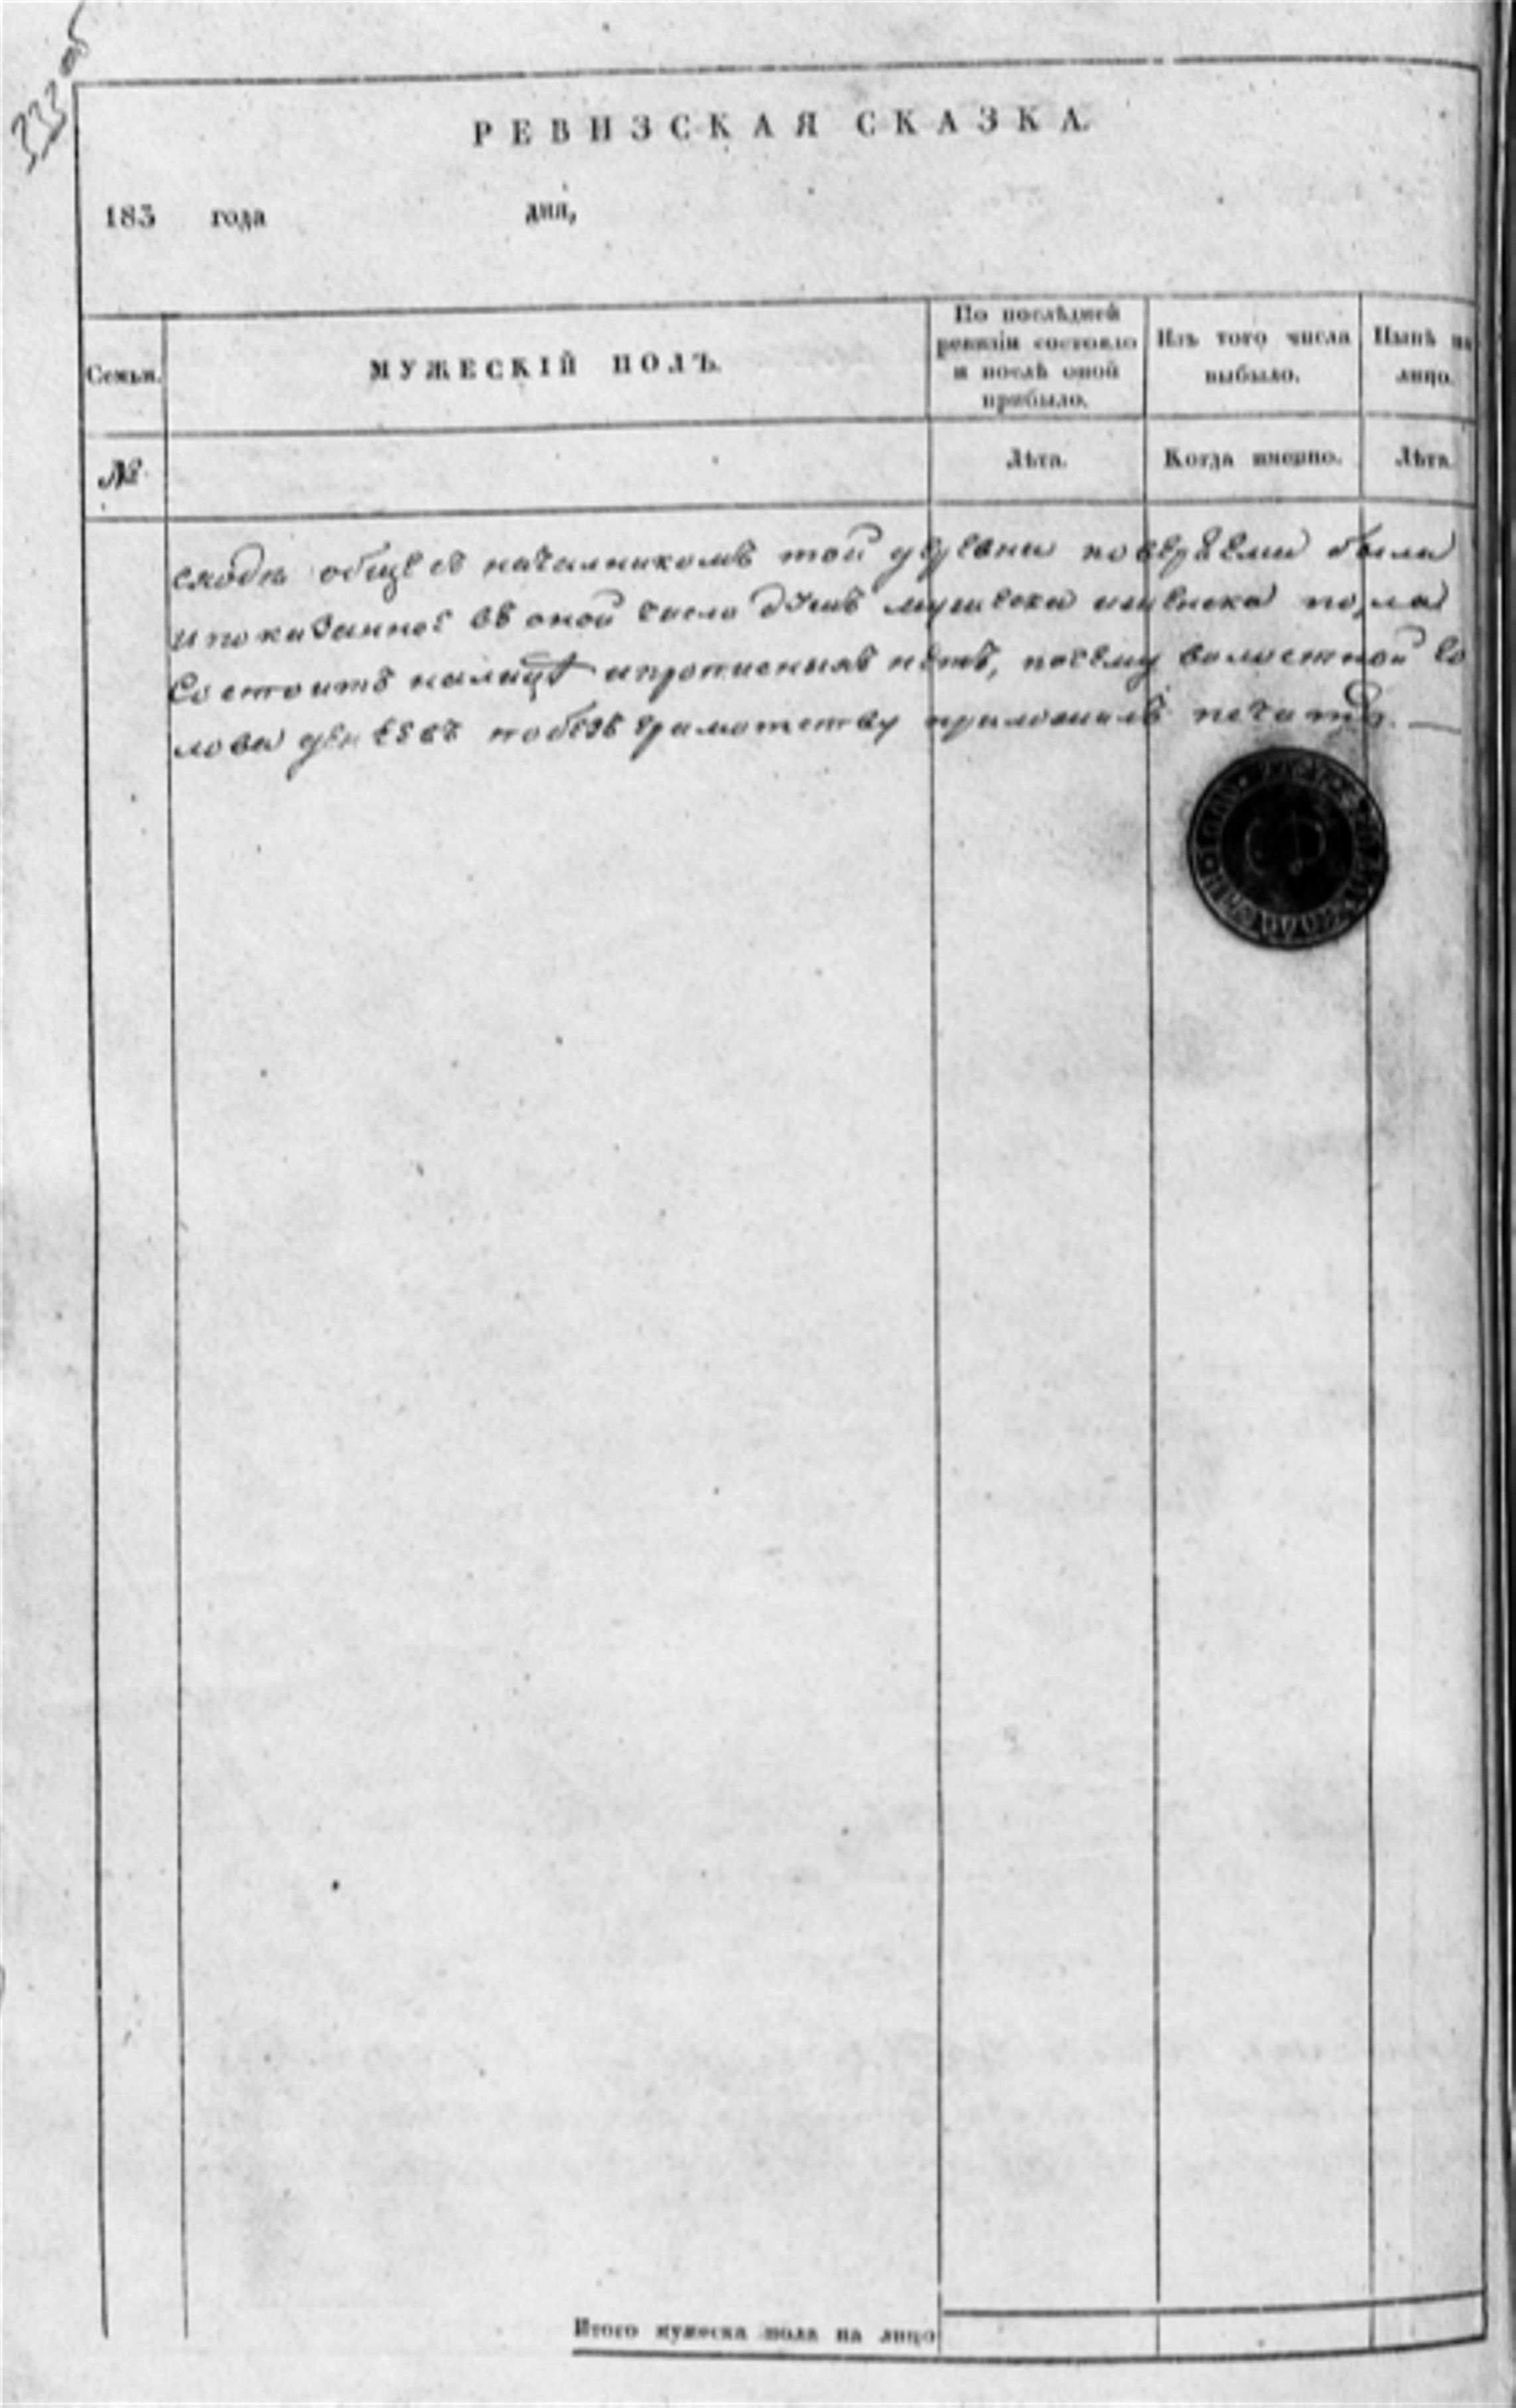 333 об
РЕВИЗСКАЯ СКАЗКА.
185 года дня,
Семьи.
МУЖЕСКІЙ ПОЛЪ.
По послѣдней
ревизіи состояло
и послѣ оной
прибыло.
Изъ того числа
выбыло.
Нынѣ на
лицо.
№
Лѣта.
Когда именно.
Лѣта.
сходѣ общее началникомъ той деревни поверяемы были
и показанное въ оной число душъ мужеска и женска пола
состоитъ налицѣ и прописныхъ нѣтъ, посему волостной го
лова побезъграмотству приложилъ печать. —
Итого мужеска пола на лицо